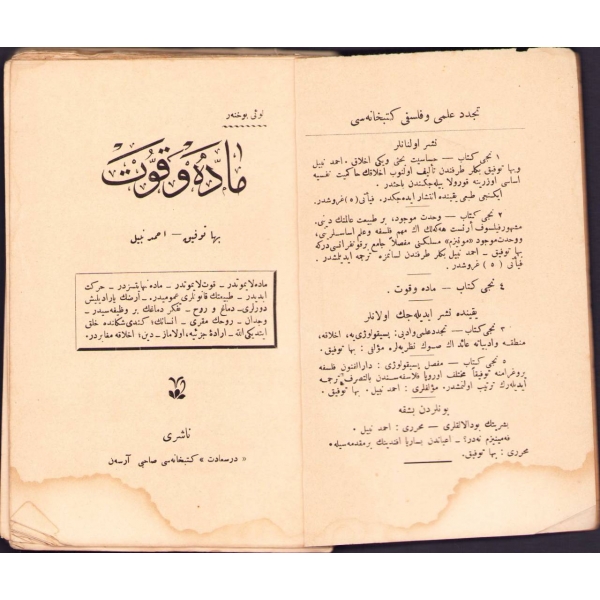 تجدد علمی و فلسفی کتبخانه‌سی
نشر اولنانلر
۱ نجی کتاب — حساسیت بحثی ویکی اخلاق. احمد نبیل
وبها توفیق بکلر طرفندن تألیف اولنوب اخلاقك حاکمیت نفسیه
اساسی اوزرینه قوروله بیله‌جکندن باحثدر.
ایکنجی طبعی یقینده انتشار ایده‌جکدر. فیأتی (۵) غروشدر.
۲ نجی کتاب — وحدت موجود، بر طبیعت عالمنك دینی.
مشهور فیلسوف أرنست هه‌کلك اك مهم فلسفه وعلم اساسلرینی،
ووحدت موجود «مونیزم» مسلکنی مفصلاً جامع بر قونفرانسی‌درکه
بها توفیق — احمد نبیل بکلر طرفندن لسانمزه ترجمه ایدیلمشدر.
فیأتی (۵) غروشدر.
٤ نجی کتاب — ماده وقوت.
یقینده نشر ایدیله‌جك اولانلر
۳ نجی کتاب — تجدد علمی وادبی: پسیقولوژی‌یه، اخلاقه،
منطقه وادبیاته عائد اك صوك نظریه‌لر. مؤلفی: بها توفیق.
۵ نجی کتاب — مفصل پسیقولوژی: دارالفنون فلسفه
پروغرامنه توفیقاً مختلف اوروپا فلاسفه‌سندن بالتصرف ترجمه
ایدیله‌رك ترتیب اولنمشدر. مؤلفلری: احمد نبیل. بها توفیق.
بونلردن بشقه
بشریتك بودالالقلری — محرری: احمد نبیل.
فه‌مینیزم نه‌در؟ — اعیاندن بساریا افندینك بر مقدمه‌سیله.
محرری: بها توفیق.
لوئی بوخنه‌ر
مادّه وقوّت
بها توفیق — احمد نبیل
ماده لایموتدر — قوت لایموتدر — ماده نهایتسزدر — حرکت
ابدیدر — طبیعتك قانونلری عمومیدر. ارضك یارادیلیش
دورلری — دماغ و روح — تفکر دماغك بر وظیفه‌سیدر —
وجدان — روحك مقری — انسانك؛ کندی شکلنده خلق
ایتدیکی الله — ارادهٔ جزئیه، اولاماز — دین، اخلاقه مغایردر.
ناشری
« درسعادت » کتبخانه‌سی صاحبی آرسه‌ن